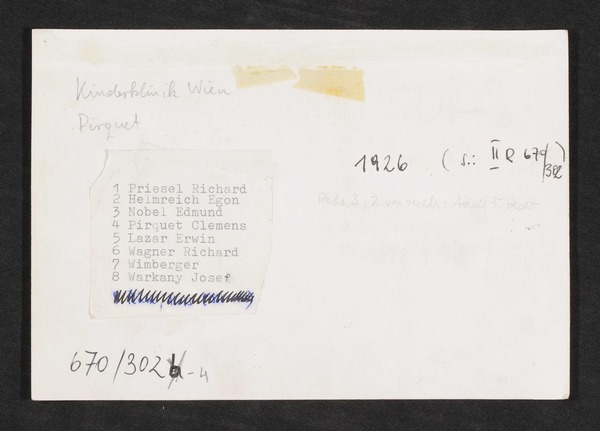 Kinderklinik Wien
Pirquet
1926 (s.: II R 670/302)
Reihe 3, 2. von rechts: Adolf F. Hecht
1 Priesel Richard
2 Helmreich Egon
3 Nobel Edmund
4 Pirquet Clemens
5 Lazar Erwin
6 Wagner Richard
7 Wimberger
8 Warkany Josef
670/302 -4